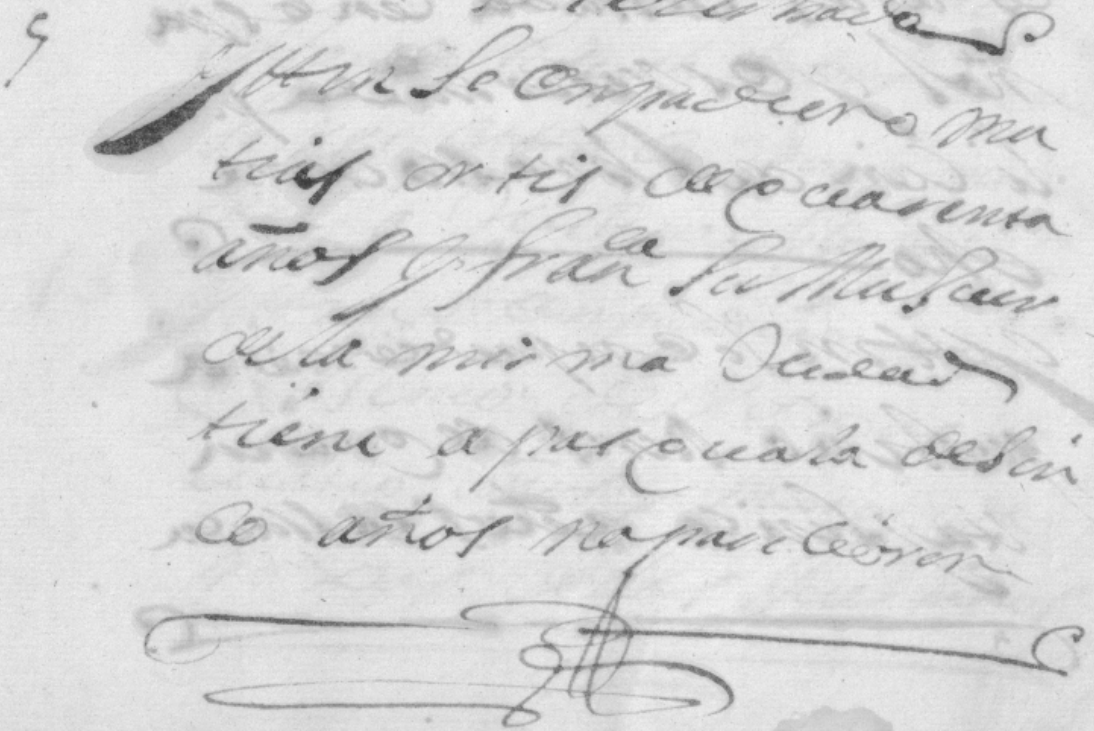 Yttn Se Enpadiero ma
tias ortis de quarenta
años y Fran ca Su Muger
de la misma Yedad
tiene a pasquala de Sin
co años no parecieron